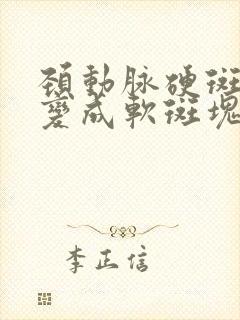 頚動脉硬斑
變成軟斑塊
李正信